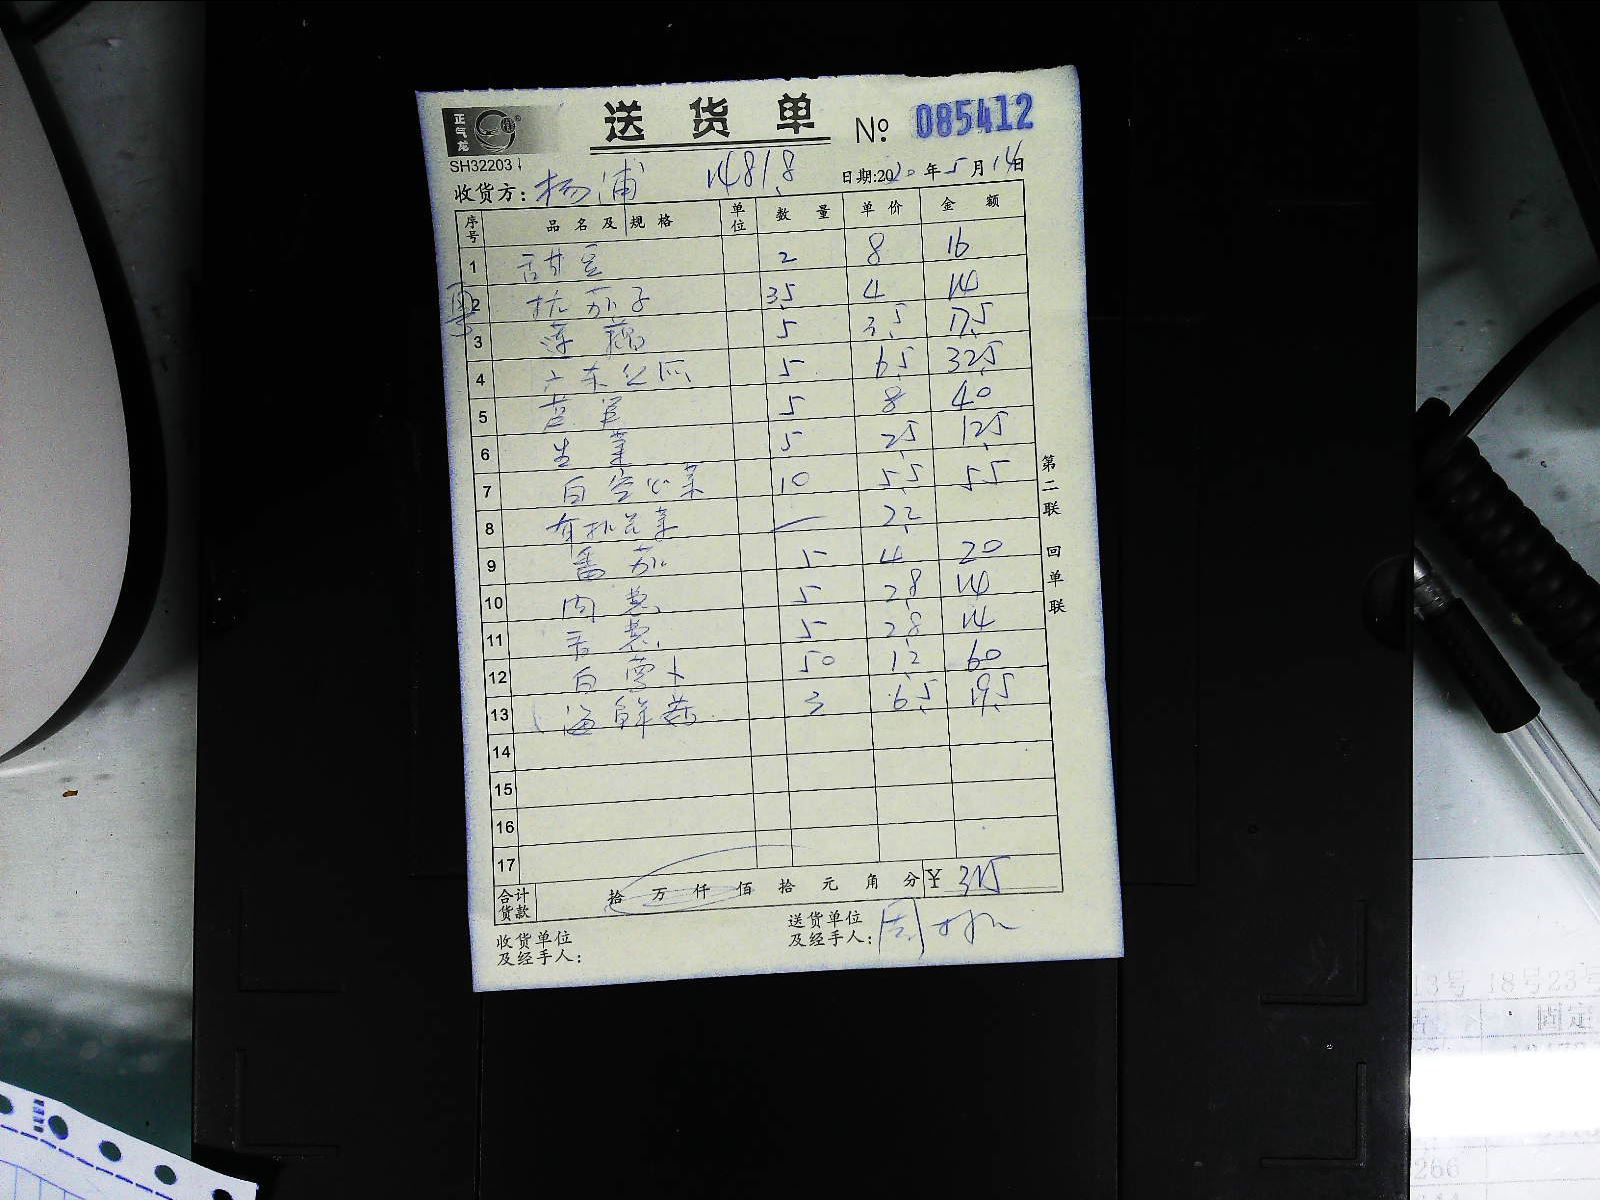 正气龙
送 货 单 № 085412
SH32203
收货方: 杨浦 14818 日期:2020年5月14日
序号 品名及规格 单位 数量 单价 金额
1 甜豆 2 8 16
2 杭茄子 3.5 4 14
3 莲藕 5 3.5 17.5
4 广东丝瓜 5 6.5 32.5
5 5 8 40
6 生菜 5 2.5 12.5
7 白空心菜 10 5.5 55
8 有机花菜 — 2.2
9 番茄 5 4 20
10 内葱 5 2.8 14
11 香葱 5 2.8 14
12 白萝卜 50 1.2 60
13 海鲜菇 3 6.5 19.5
14
15
16
17
合计货款 拾 万 仟 佰 拾 元 角 分 ¥ 315
收货单位及经手人:
送货单位及经手人: 周
第二联 回单联
13号 18号23号
固定
266